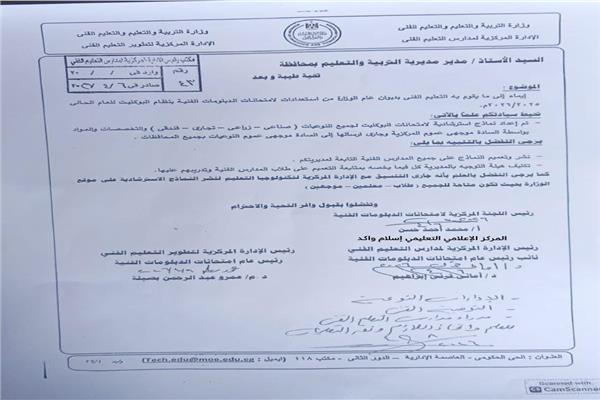 وزارة التربية والتعليم والتعليم الفنى
الإدارة المركزية لتطوير التعليم الفنى
وزارة التربية والتعليم والتعليم الفنى
الإدارة المركزية لمدارس التعليم الفنى
مكتب رئيس الإدارة المركزية لمدارس التعليم الفني
رقم
٤٣
وارد فى / / ٢٠
صادر فى
السيد الأستاذ / مدير مديرية التربية والتعليم بمحافظة
تحية طيبة وبعد
الموضوع :
إيماء إلى ما يقوم به التعليم الفنى بديوان عام الوزارة من استعدادات لامتحانات الدبلومات الفنية بنظام البوكليت للعام الحالى
٢٠٢٦/٢٠٢٥م.
نحيط سيادتكم علما بالآتى:
- تم إعداد نماذج استرشادية لامتحانات البوكليت لجميع النوعيات ( صناعى – زراعى – تجارى – فندقى ) والتخصصات والمواد
بواسطة السادة موجهى عموم المركزية وجارى ارسالها إلى السادة موجهى عموم النوعيات بجميع المحافظات .
يرجى التفضل بالتنبيه بما يلى:
- نشر وتعميم النماذج على جميع المدارس الفنية التابعة لمديريتكم .
- تكليف هيئة التوجيه بالمديرية كل فيما يخصه بمتابعة التعميم على طلاب المدارس الفنية وتدريبهم عليها.
كما يرجى التفضل بالعلم بأنه جارى التنسيق مع الإدارة المركزية لتكنولوجيا التعليم لنشر النماذج الاسترشادية على موقع
الوزارة بحيث تكون متاحة للجميع ( طلاب – معلمين – موجهين )
وتفضلوا بقبول وافر التحية والاحترام
رئيس اللجنة المركزية لامتحانات الدبلومات الفنية
أ / محمد أحمد حسن
المركز الإعلامي التعليمي إسلام واكد
رئيس الإدارة المركزية لمدارس التعليم الفني
نائب رئيس عام امتحانات الدبلومات الفنية
د / أمانى قرنى إبراهيم
رئيس الإدارة المركزية لتطوير التعليم الفني
رئيس عام امتحانات الدبلومات الفنية
د.م/ عمرو عبد الرحمن بصيلة
العنوان : الحى الحكومى - العاصمة الإدارية – الدور الثانى - مكتب ١١٨ | ايميل : (Tech.edu@moe.edu.eg)
Scanned with
CamScanner